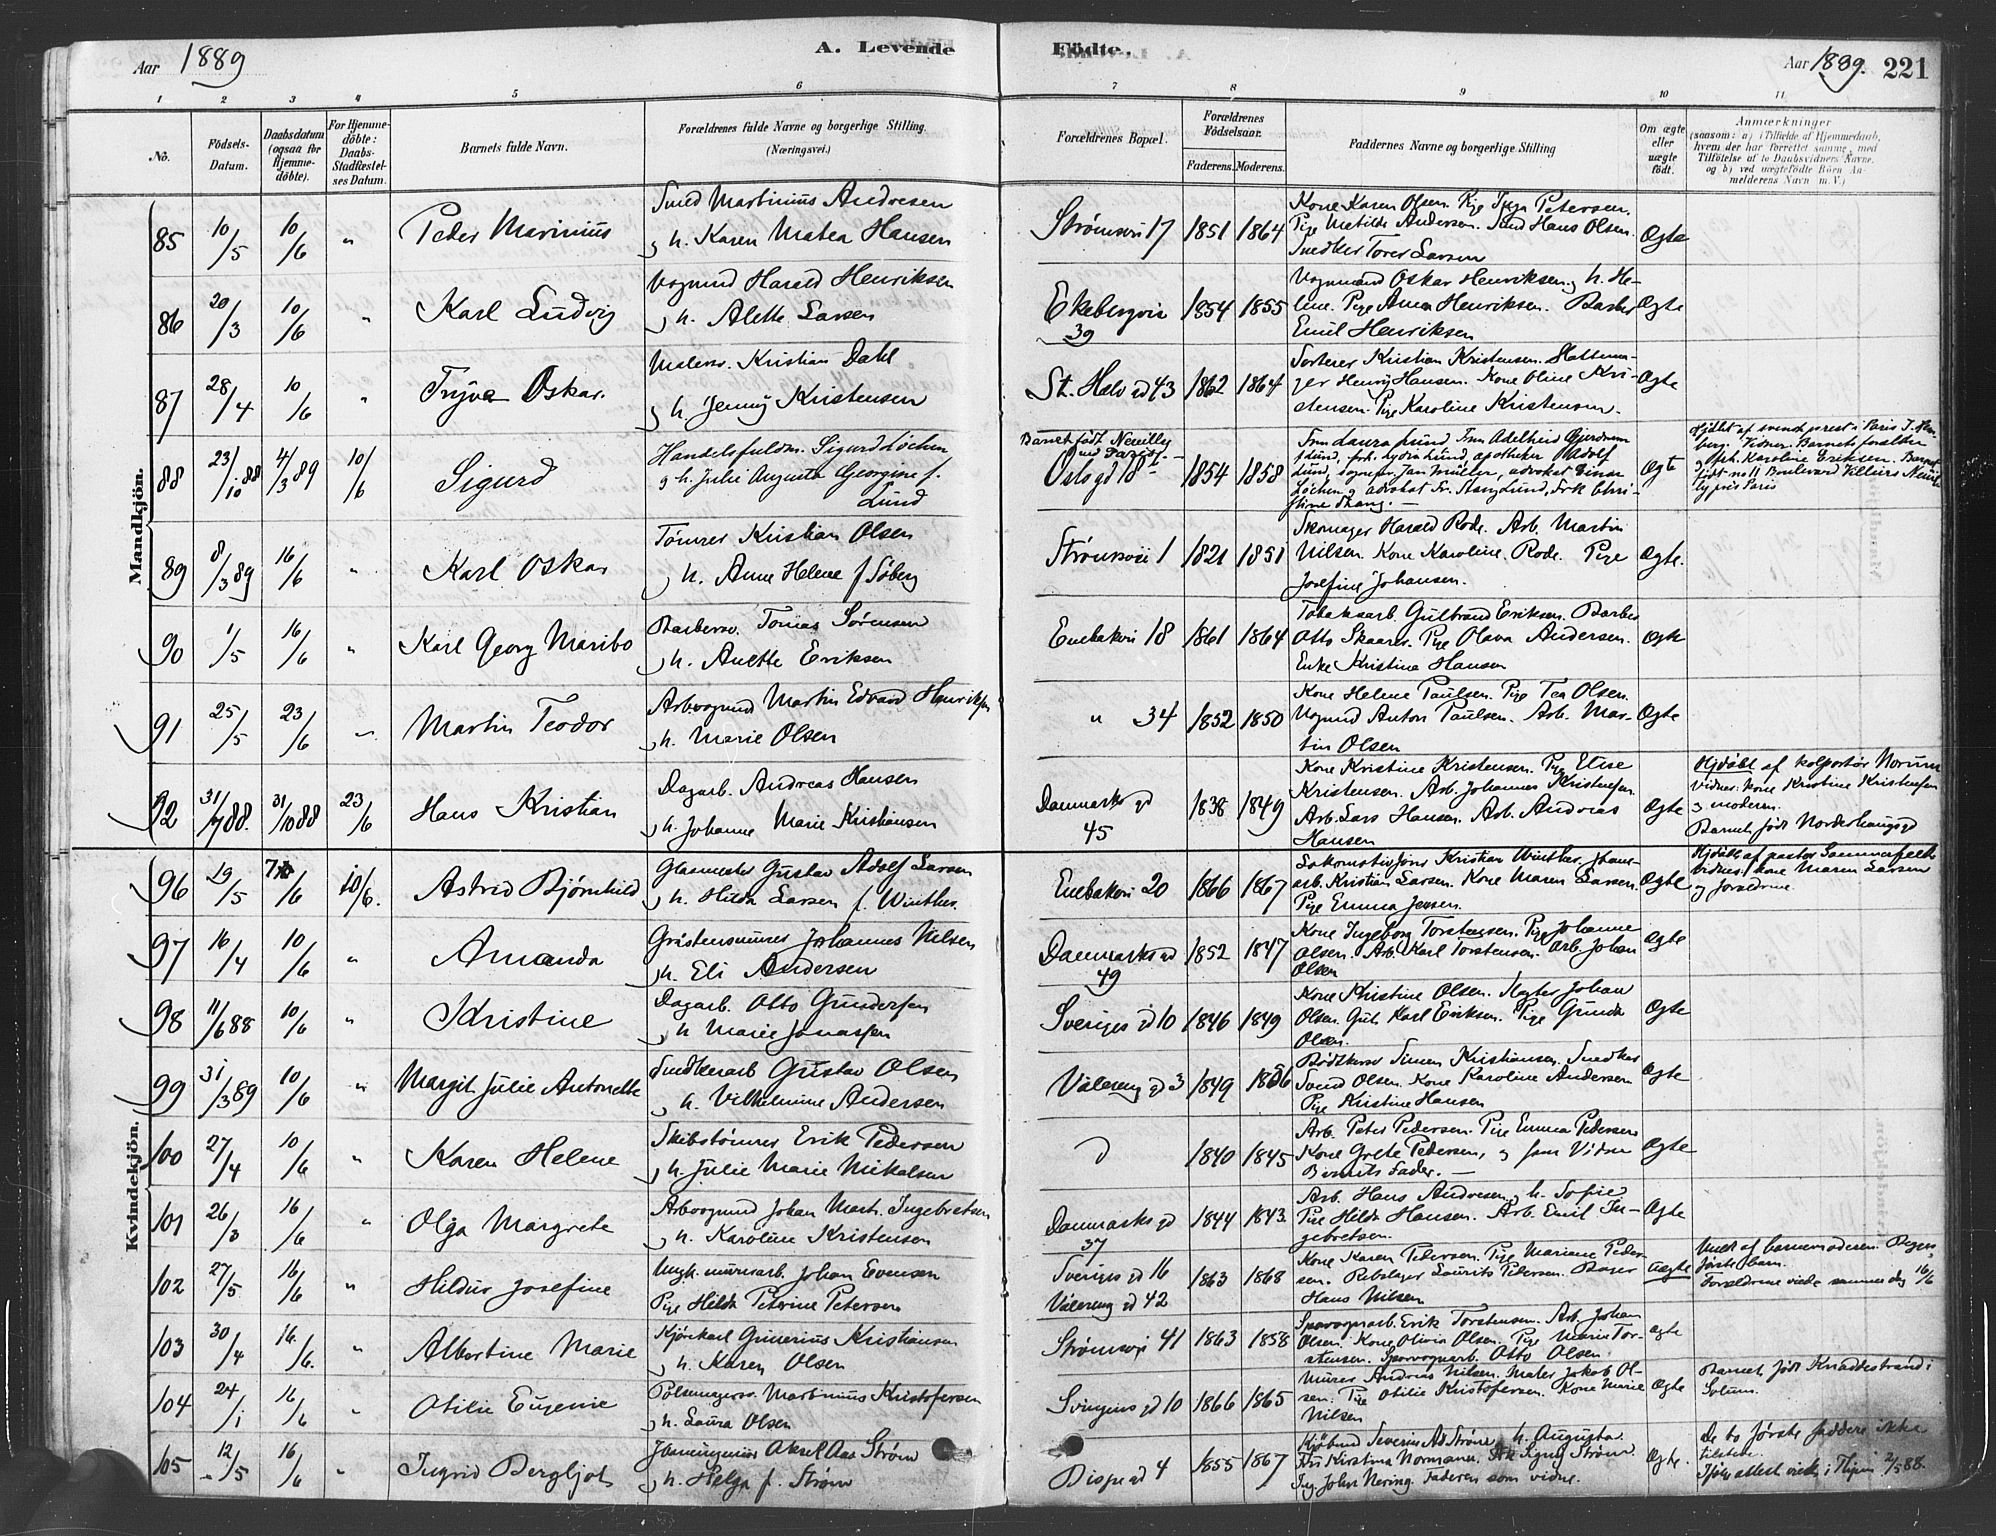 Aar 1889
A. Levende
Födte.
Aar 1889. 221
1 2 3 4 5 6 7 8 9 10 11
No.
Födsels-Datum.
Daabsdatum (ogsaa för Hjemmedöbte).
For Hjemmedöbte: Daabs-Stadfæstelses Datum.
Barnets fulde Navn.
Forældrenes fulde Navne og borgerlige Stilling.
(Næringsvei.)
Forældrenes Bopæl.
Forældrenes Födselsaar.
Faderens. Moderens.
Faddernes Navne og borgerlige Stilling
Om ægte eller uægte født.
Anmærkninger
(saasom: a) i Tilfælde af Hjemmedaab, hvem der har forrettet samme, med Tilföielse af to Daabsvidners Navne, og b) ved uægtefödte Börn Anmelderens Navn m. V.)
Mandkjön.
85 10/5 10/6 " Peder Marinius
Smed Martinius Andresen
og h. Karen Matea Hansen
Strømsvei 17 1851 1864
Kone Karen Olsen. Pige Inga Petersen.
Pige Matilde Andersen. Smed Hans Olsen.
Snedker Torer Larsen
Ægte
86 20/3 10/6 " Karl Ludvig
Vognmd Harald Henriksen
og h. Alette Larsen
Ekebergvei 39 1854 1855
Vognmand Oskar Henriksen og h. He-
lene. Pige Anna Henriksen. Barber
Emil Henriksen
Ægte
87 28/4 10/6 " Trygve Oskar.
Malersv. Kristian Dahl
og h. Jenny Kristensen
St. Halv gd 43 1862 1864
Sorterer Kristian Kristensen. Hattema-
ger Henry Hansen. Kone Oline Kri-
stensen. Pige Karoline Kristensen.
Ægte
88 23/10 88 4/3 89 10/6 Sigurd
Handelsfuldm. Sigurd Løchen
og h. Julie Augusta Georgine f.
Lund
Barnet født Neuilly
ved Paris
Oslogd 18 1854 1858
Fru Laura Lund, Fru Adelheid Gjerdrum
Lund, frk. Lydia Lund, apotheker Adolf
Lund, sogneprt Jan Müller, advokat Einar
Løchen og advokat Fr. Stang Lund, Frk Chri-
stine Stang. —
Ægte
Hjdøbt af svensk prest i Paris
Vidner Barnets forældre
og Karoline Eriksen. Barnet
født no 11 Boulevard Villiers Neuil-
ly près Paris
89 8/3 89 16/6 " Karl Oskar
Tömrer Kristian Olsen
og h. Anne Helene f Söberg
Strømsvei 1 1821 1851
Skomager Harald Rode. Arb. Martin
Nilsen. Kone Karoline Rode. Pige
Josefine Johansen.
Ægte.
90 1/5 16/6 " Karl Georg Maribo
Barbersv. Tomas Sørensen
og h. Anette Eriksen
Enebakvei 18 1861 1864
Tobaksarb Gulbrand Eriksen. Barber
Otto Skaarer. Pige Olava Andersen.
Enke Kristine Hansen
Ægte
91 25/5 23/6 " Martin Teodor
Arbvognmd Martin Edvard Henriksen
og h. Marie Olsen
" 34 1852 1850
Kone Helene Paulsen. Pige Tea Olsen.
Vognmd Anton Paulsen. Arb. Mar-
tin Olsen
Ægte
92 31/7 88. 31/10 88 23/6 Hans Kristian
Dagarb. Andreas Hansen
og h. Johanne Marie Kristiansen
Danmarks gd 45 1838 1849
Kone Kristine Kristensen. Pige Elise
Kristensen. Arb. Johannes Kristensen.
Arb. Lars Hansen. Arb. Andreas
Hansen
Ægte
Hjdöbt af kolportör Norum
vidner. kone Kristine Kristensen
og moderen.
Barnet født Norderhougsgd
Kvindekjön.
96 19/5 7/6 10/6. Astrid Bjørnhild
Glasmester Gustav Adolf Larsen
og h. Hilda Larsen f. Winther.
Enebakvei 20 1866 1867
Lokomotivförer Kristian Winther.
arb. Kristian Larsen. Kone Maren Larsen.
Pige Emma Jensen.
Ægte
Hjdöbt af pastor Sommerfeldt
vidner: kone Maren Larsen
og forældrene
97 16/4 10/6 " Amanda
Graastensmurer Johannes Nilsen
og h. Eli Andersen
Danmarks gd 49 1852 1847
Kone Ingeborg Torstensen. Pige Johanne
Olsen. Arb. Karl Torstensen. Arb. Johan
Olsen
Ægte
98 11/6 88 10/6 " Kristine
Dagarb. Otto Gundersen
og h Marie Jonassen
Sveriges gd 10 1846 1849
Kone Kristine Olsen. Slagter Johan
Olsen. Gut. Karl Eriksen. Pige Gunda
Olsen.
Ægte
99 31/3 89 10/6 " Margit Julie Antonette
Snedkerarb Gustav Olsen
og h. Vilhelmine Andersen
Vålereng gd 3 1849 1856
Bødkersv Simen Kristiansen. Snedker
Svend Olsen. Kone Karoline Andersen
Pige Kristine Hansen
Ægte
100 27/4 10/6 " Karen Helene
Skibstömrer Erik Pedersen
og h. Julie Marie Nikolsen
D 1840 1845
Arb. Peter Pedersen. Pige Emma Pedersen
Kone Grete Pedersen, og som Vidne
Barnets Fader. —
Ægte
101 26/3 16/6 " Olga Margrete
Arbvognmd Johan Mart. Ingebretsen
og h. Karoline Kristensen
Danmarks gd 37 1844 1843.
Arb. Hans Andresen og h. Sofie
Pige Hilda Hansen. Arb. Emil In-
gebretsen.
Ægte
102 27/5 16/6 " Hildur Josefine
Ungk. murerarb. Johan Evensen
Pige Hilda Petrine Petersen
Sveriges gd 16
Vålereng gd 42
1863 1868
Kone Karen Pedersen. Pige Mariane Peder-
sen. Rebslager Laurits Pedersen. Bager
Hans Nilsen
Uægte
Meldt af barnemoderen. Begges
første barn.
Forældrene viede samme dag 16/6
103 30/4 16/6. " Albertine Marie
Kjörekarl Grinerius Kristiansen
og h. Karen Olsen
Strømsvei 41 1863 1858
Sporvognarb. Erik Torstensen. Arb. Johan
Olsen. Kone Olivia Olsen. Pige Marie Tor-
stensen. Sporvognarb. Otto Olsen
Ægte
104 24/1 16/6 " Otilie Eugenie
Pölsemagersv. Martinius Kristofersen
og h. Laura Olsen
Sveriges gd 10 1866 1865
Murer Andreas Nilsen. Maler Jakob Ol-
sen. Pige Otilie Kristofersen. Kone Marie
Nilsen
Ægte
Barnet født Knardestrand i
Solum.
105 12/5 16/6 " Ingrid Bergljot
Aksel Aas Strøm
og h. Helga f. Strøm
Bispegd 4 1855 1867
Kjöbmd Severin A. Strøm og h. Augusta.
Frk Kirstina Normann. Frk Signe Strøm
Ing. John Nering. Faderen som vidne.
Ægte.
De to første faddere ikke
tilstede.
attest viede i 2/5 88.